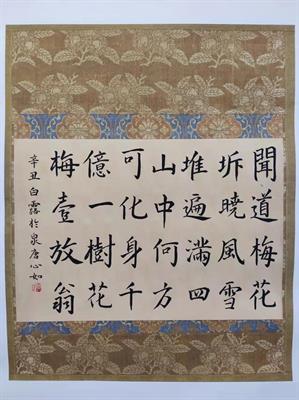 聞道梅花
坼曉風雪
堆遍滿四
山中何方
可化身千
億一樹花
梅壹放翁
辛丑白露於泉唐心如